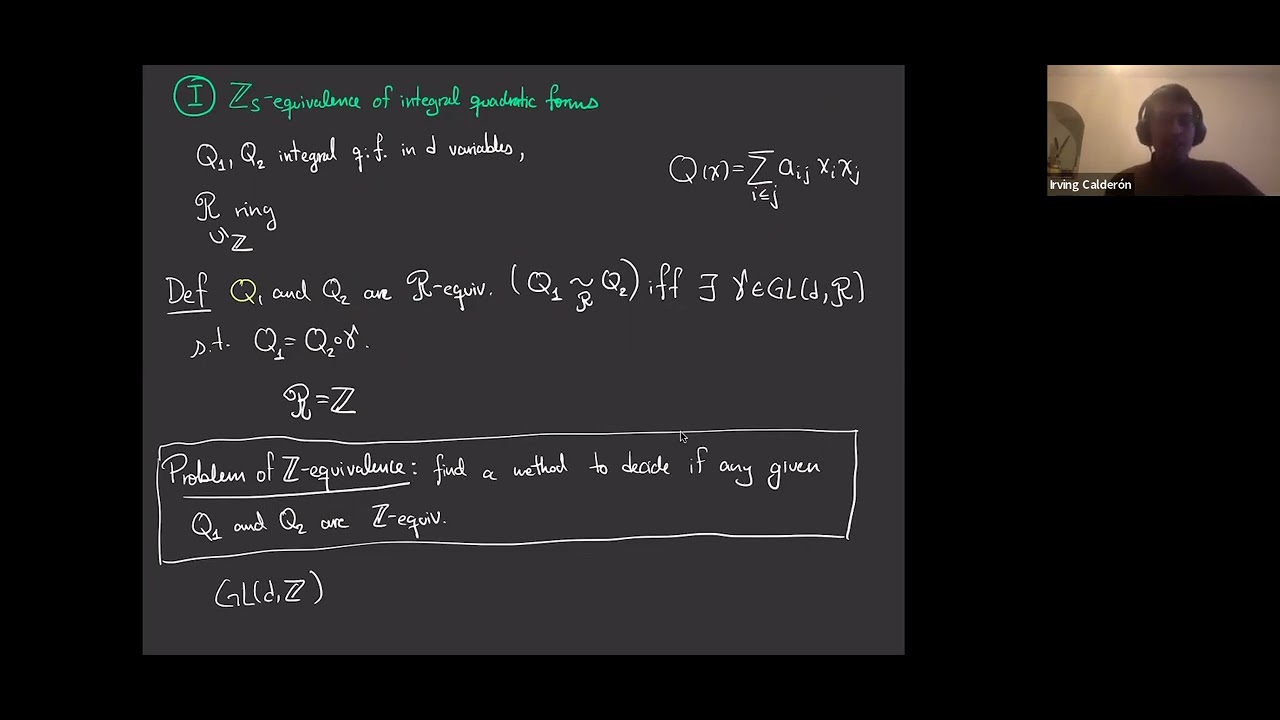 I ℤs-equivalence of integral quadratic forms
Q₁, Q₂ integral q.f. in d variables,
Q(x) = ∑ aᵢⱼ xᵢxⱼ
i≤j
R ring
∪| ℤ
Def Q₁ and Q₂ are R-equiv. (Q₁ ~ Q₂) iff ∃ γ∈GL(d,R)
R
s.t. Q₁ = Q₂∘γ.
R = ℤ
Problem of ℤ-equivalence: find a method to decide if any given
Q₁ and Q₂ are ℤ-equiv.
GL(d,ℤ)
Irving Calderón